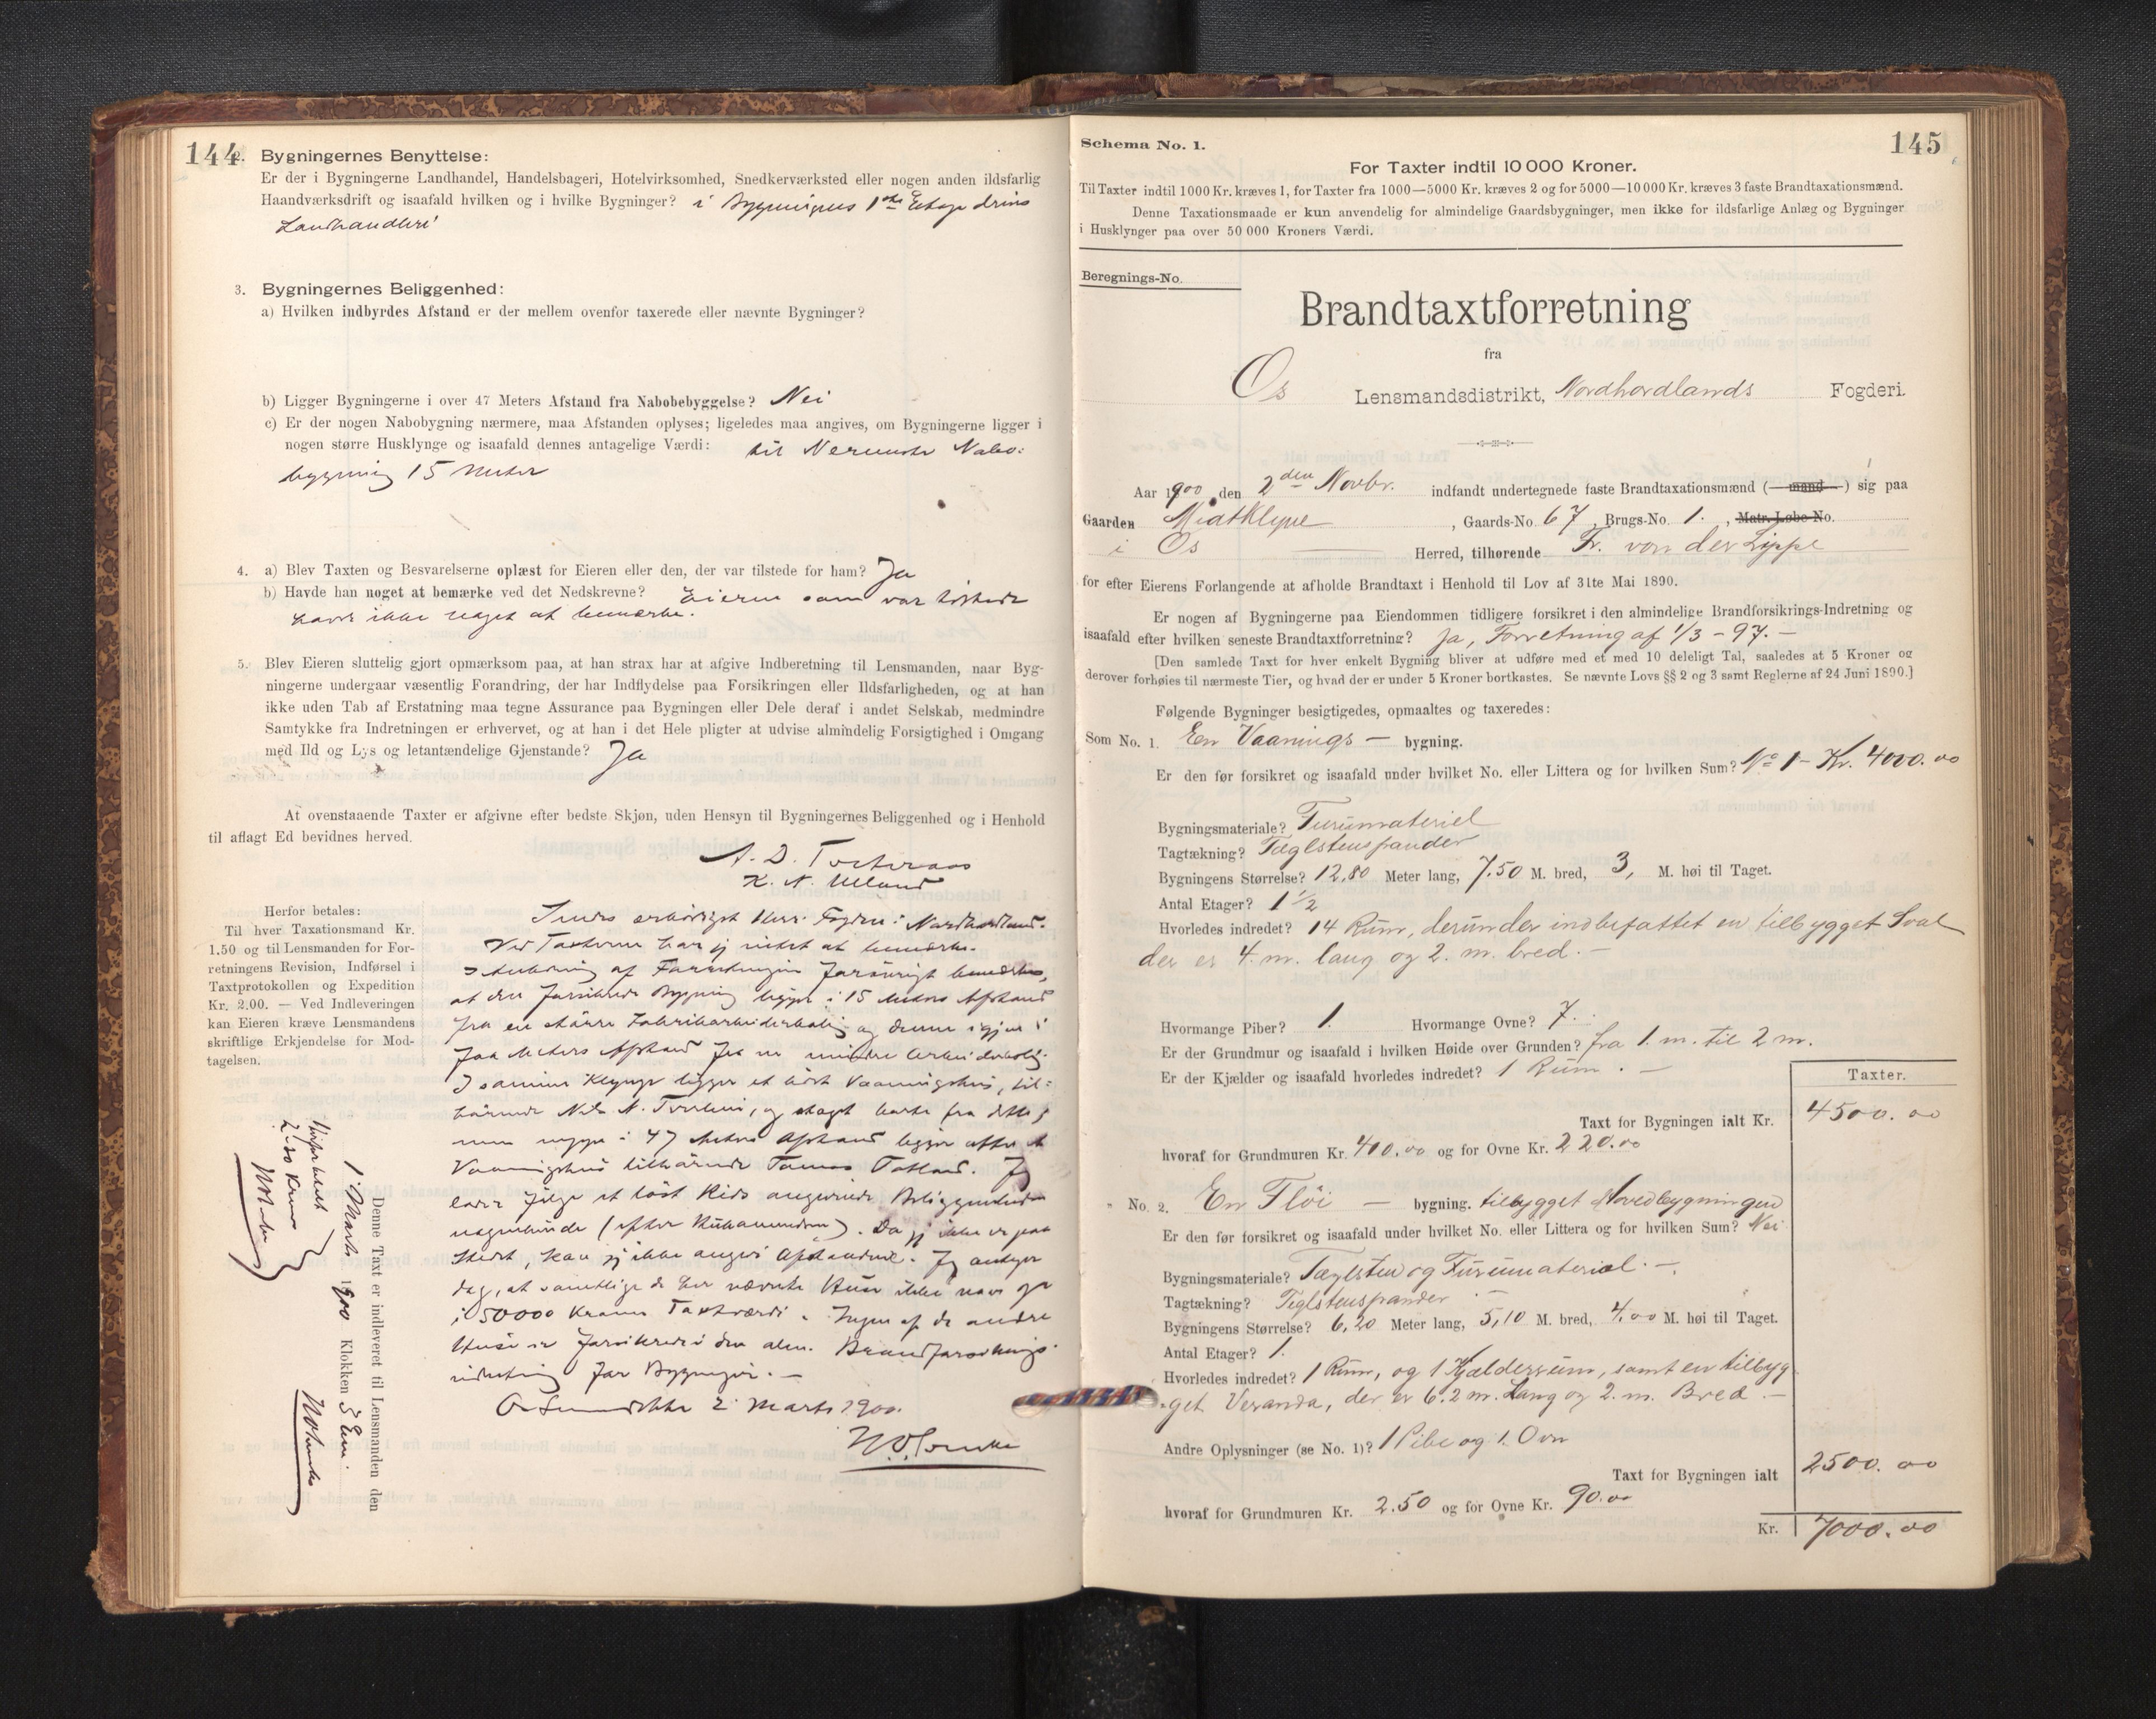 144
2. Bygningernes Benyttelse:
Er der i Bygningerne Landhandel, Handelsbageri, Hotelvirksomhed, Snedkerværksted eller nogen anden ildsfarlig
Haandværksdrift og isaafald hvilken og i hvilke Bygninger? i Bygningens 1ste Etage drives
Landhandleri
3. Bygningernes Beliggenhed:
a) Hvilken indbyrdes Afstand er der mellem ovenfor taxerede eller nævnte Bygninger?
b) Ligger Bygningerne i over 47 Meters Afstand fra Nabobebyggelse? Nei
c) Er der nogen Nabobygning nærmere, maa Afstanden oplyses; ligeledes maa angives, om Bygningerne ligger i
nogen større Husklynge og isaafald dennes antagelige Værdi: til Nermeste Nabo:
bygning 15 Meter
4. a) Blev Taxten og Besvarelserne oplæst for Eieren eller den, der var tilstede for ham? Ja
b) Havde han noget at bemærke ved det Nedskrevne? Eieren som var tilstede
havde ikke noget at bemærke.
5. Blev Eieren sluttelig gjort opmærksom paa, at han strax har at afgive Indberetning til Lensmanden, naar Byg-
ningerne undergaar væsentlig Forandring, der har Indflydelse paa Forsikringen eller Ildsfarligheden, og at han
ikke uden Tab af Erstatning maa tegne Assurance paa Bygningen eller Dele deraf i andet Selskab, medmindre
Samtykke fra Indretningen er erhvervet, og at han i det Hele pligter at udvise almindelig Forsigtighed i Omgang
med Ild og Lys og letantændelige Gjenstande? Ja
At ovenstaaende Taxter er afgivne efter bedste Skjøn, uden Hensyn til Bygningernes Beliggenhed og i Henhold
til aflagt Ed bevidnes herved.
Herfor betales:
Til hver Taxationsmand Kr.
1.50 og til Lensmanden for For-
retningens Revision, Indførsel i
Taxtprotokollen og Expedition
Kr. 2.00. — Ved Indleveringen
kan Eieren kræve Lensmandens
skriftlige Erkjendelse for Mod-
tagelsen.
Sendes ærbödigst Herr Fogden i Nordhordland.
Ved Taxterne har jeg intet at bemærke.
I Anledning af Forretningen forövrigt bemærkes,
at den forsikrede Bygning ligger i 15 Meters Afstand
fra en större Fabrikarbeiderbolig og denne igjen i
faa Meters Afstand fra en mindre Arbeiderbolig.
I samme Klynge ligger et lidet Vaaningshus, til=
hörende Nils N.
Vaaningshus tilhörende
Da jeg ikke er paa
Stedet, kan jeg ikke angive Afstandene. Jeg antager
dog, at samtlige de her nævnte Huse ikke naar op
i 50000 Kroners Taxtværdi. Ingen af de andre
Huse er forsikrede i den alm. Brandforsikrings-
indretning for Bygninger. —
2 Marts 1900.
Denne Taxt er indleveret til Lensmanden den
1 Marts 1900 Klokken 5 Em.
Herfor betalt
Kroner
145
Schema No. 1.
For Taxter indtil 10 000 Kroner.
Til Taxter indtil 1000 Kr. kræves 1, for Taxter fra 1000—5000 Kr. kræves 2 og for 5000—10 000 Kr. kræves 3 faste Brandtaxationsmænd.
Denne Taxationsmaade er kun anvendelig for almindelige Gaardsbygninger, men ikke for ildsfarlige Anlæg og Bygninger
i Husklynger paa over 50 000 Kroners Værdi.
Beregnings-No.
Brandtaxtforretning
fra
Os Lensmandsdistrikt, Nordhordlands Fogderi.
Aar 1900 den 2den Novbr. indfandt undertegnede faste Brandtaxationsmænd (— mand —) sig paa
Gaarden Midtklyve, Gaards-No. 67, Brugs-No. 1., Matr. Løbe-No.
i Os Herred, tilhørende Fr. von der Lippe
for efter Eierens Forlangende at afholde Brandtaxt i Henhold til Lov af 31te Mai 1890.
Er nogen af Bygningerne paa Eiendommen tidligere forsikret i den almindelige Brandforsikrings-Indretning og
isaafald efter hvilken seneste Brandtaxtforretning? Ja, Forretning af 1/3 - 97. —
[Den samlede Taxt for hver enkelt Bygning bliver at udføre med et med 10 deleligt Tal, saaledes at 5 Kroner og
derover forhøies til nærmeste Tier, og hvad der er under 5 Kroner bortkastes. Se nævnte Lovs §§ 2 og 3 samt Reglerne af 24 Juni 1890.]
Følgende Bygninger besigtigedes, opmaaltes og taxeredes:
Som No. 1. En Vaanings — bygning.
Er den før forsikret og isaafald under hvilket No. eller Littera og for hvilken Sum? No 1 - Kr. 4000.00
Bygningsmateriale? Furumateriel
Tagtækning? Tæglstenspander
Bygningens Størrelse? 12,80 Meter lang, 7,50 M. bred, 3, M. høi til Taget.
Antal Etager? 1 1/2
Hvorledes indredet? 14 Rum, derunder indbefattet en tilbygget Sval
der er 4. m. lang og 2. m. bred. —
Hvormange Piber? 1. Hvormange Ovne? 7.
Er der Grundmur og isaafald i hvilken Høide over Grunden? fra 1. m. til 2 m.
Er der Kjælder og isaafald hvorledes indredet? 1 Rum. —
Taxter.
Taxt for Bygningen ialt Kr. 4500.00
hvoraf for Grundmuren Kr. 400.00 og for Ovne Kr. 220.00
" No. 2. En Flöi — bygning. tilbygget Hovedbygningen
Er den før forsikret og isaafald under hvilket No. eller Littera og for hvilken Sum? Nei
Bygningsmateriale? Tæglsten og Furumaterial. —
Tagtækning? Teglstenspander —
Bygningens Størrelse? 6,20 Meter lang, 5,10 M. bred, 4,00 M. høi til Taget.
Antal Etager? 1.
Hvorledes indredet? 1 Rum, og 1 Kjælderrum, samt en tilbyg
get Veranda, der er 6.2 m. Lang og 2. m. Bred. —
Andre Oplysninger (se No. 1)? 1 Pibe og 1. Ovn
Taxt for Bygningen ialt 2500.00
hvoraf for Grundmuren Kr. 2.50 og for Ovne Kr. 90.00
Kr. 7000.00